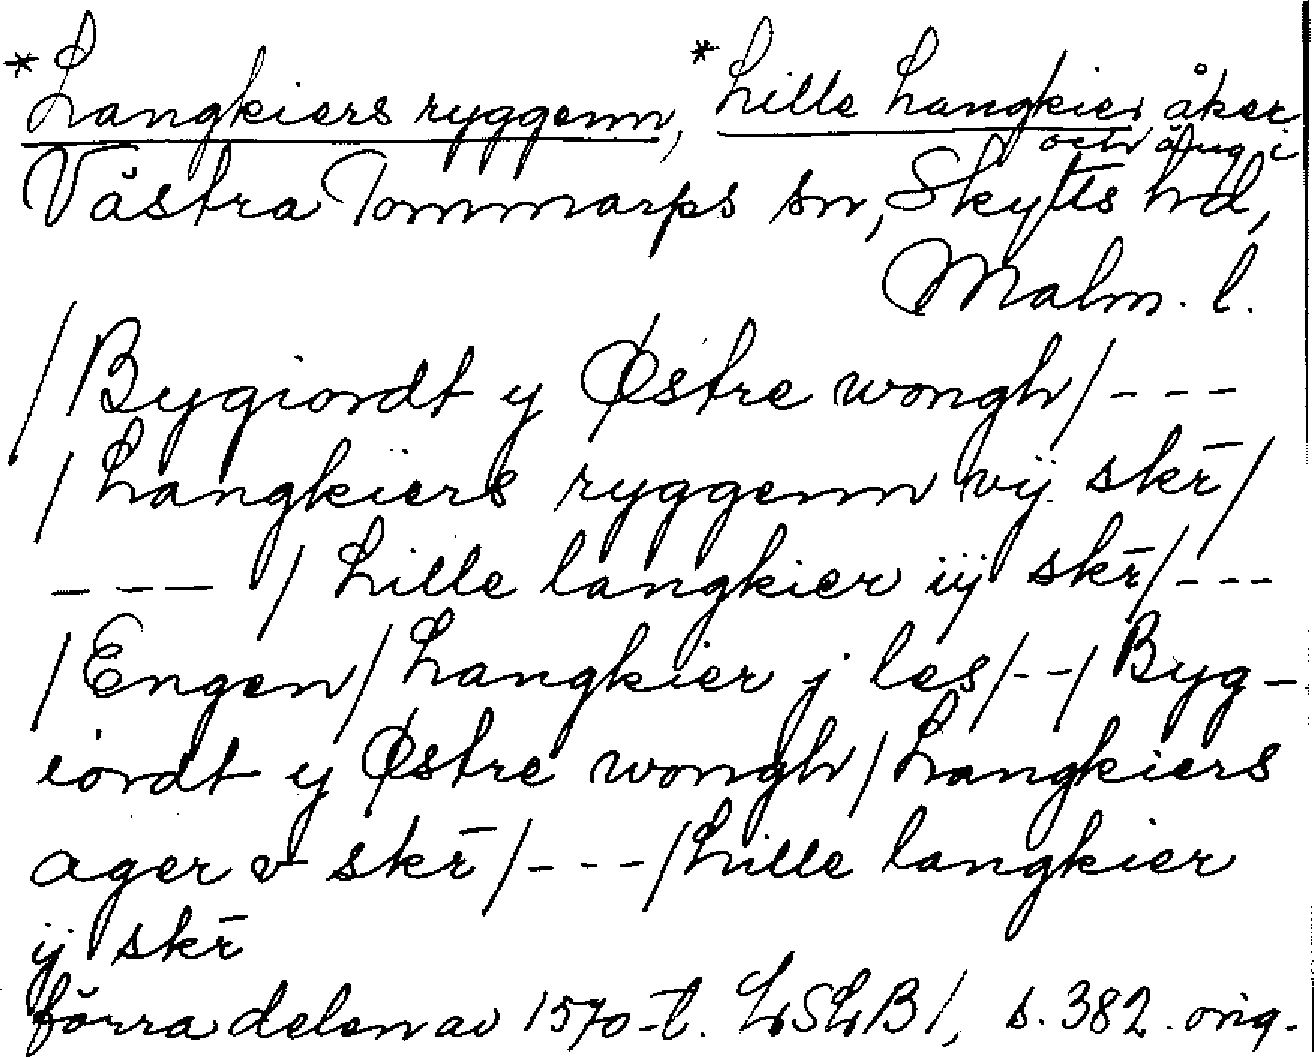 *Langkiers ryggenn, *Lille Langkier, åker
och äng i
Västra Tommarps sn, Skytts hd,
Malm. l.
/Bygiordt y Østre wongh/---
/Langkiers ryggenn vij skr̄/
--- / Lille langkier iij skr̄/---
/Engen/Langkier j les/--/Byg-
iordt y Østre wongh/Langkiers
ager v skr̄/---/Lille langkier
ij skr̄
förra delen av 1570-t. LSLB1, s. 382. orig.